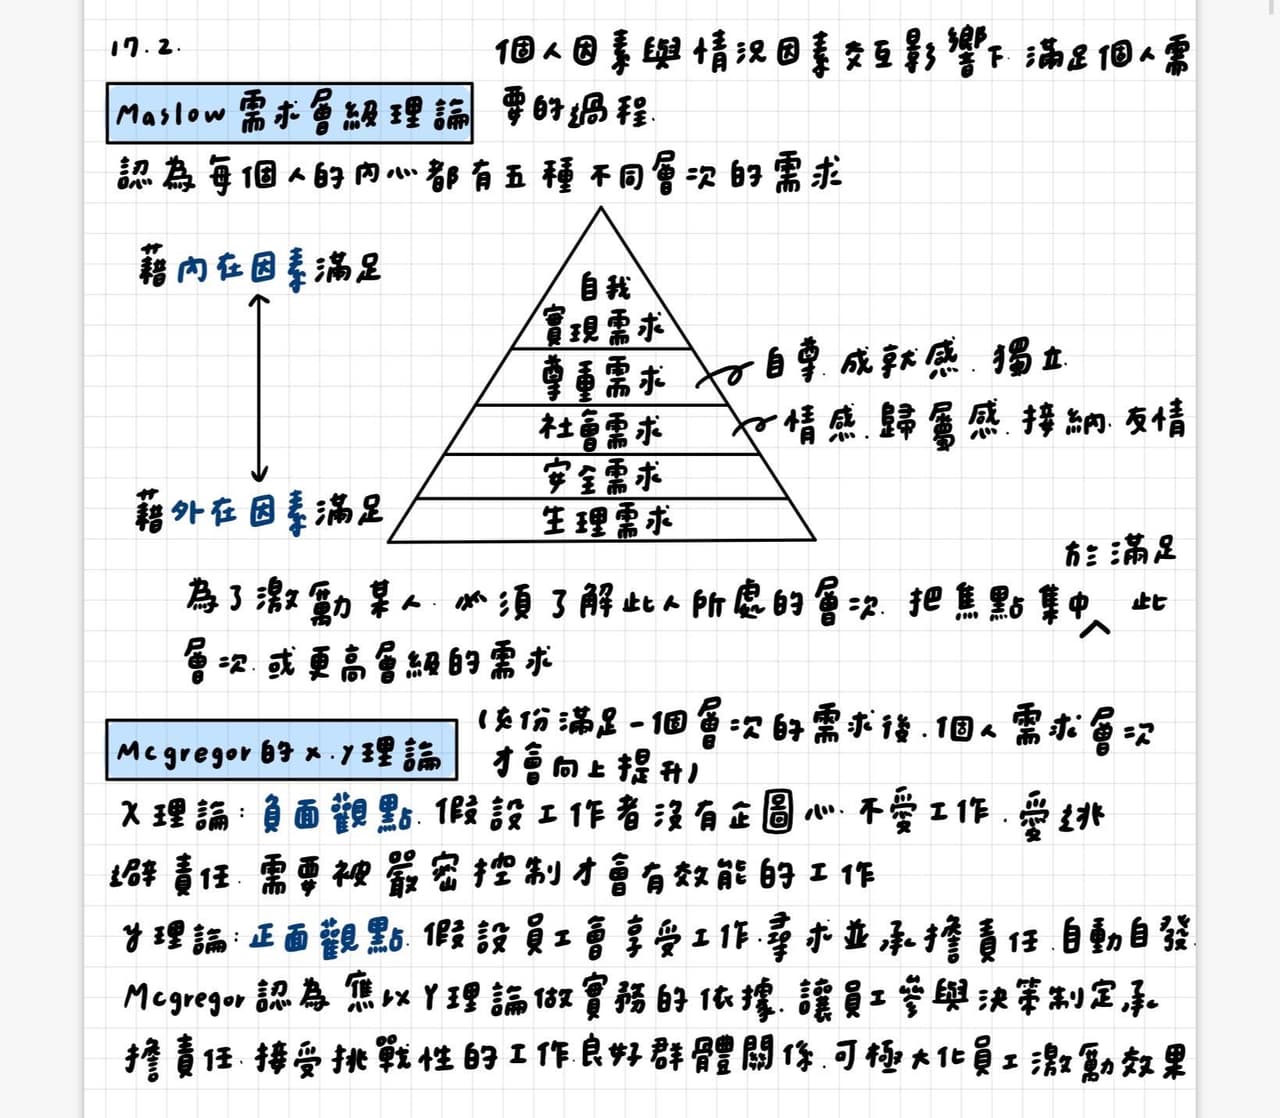 17.2.
個人因素與情況因素交互影響下 滿足個人需
要的過程.
Maslow 需求層級理論
認為每個人的內心都有五種不同層次的需求
藉內在因素滿足
自我
實現需求
尊重需求
自尊.成就感.獨立
社會需求
情感.歸屬感.接納.友情
安全需求
藉外在因素滿足
生理需求
於滿足
為了激勵某人.必須了解此人所處的層次.把焦點集中^此
層次.或更高層級的需求
(充份滿足一個層次的需求後.個人需求層次
才會向上提升)
Mcgregor的x.y理論
X理論:負面觀點.假設工作者沒有企圖心.不愛工作.愛逃
避責任.需要被嚴密控制才會有效能的工作
y理論:正面觀點.假設員工會享受工作.尋求並承擔責任.自動自發.
Mcgregor認為應以Y理論做實務的依據.讓員工參與決策制定承
擔責任.接受挑戰性的工作.良好群體關係.可極大化員工激勵效果